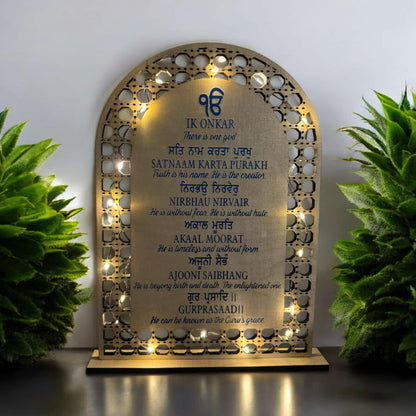 ੴ
IK ONKAR
There is one god
ਸਤਿ ਨਾਮ ਕਰਤਾ ਪੁਰਖੁ
SATNAAM KARTA PURAKH
Truth is his name He is the creator
ਨਿਰਭਉ ਨਿਰਵੈਰੁ
NIRBHAU NIRVAIR
He is without fear. He is without hate
ਅਕਾਲ ਮੂਰਤਿ
AKAAL MOORAT
He is timeless and without form
ਅਜੂਨੀ ਸੈਭੰ
AJOONI SAIBHANG
He is beyong birth and death. The enlightened one
ਗੁਰ ਪ੍ਰਸਾਦਿ ॥
GURPRASAAD॥
He can be known as the Guru's grace